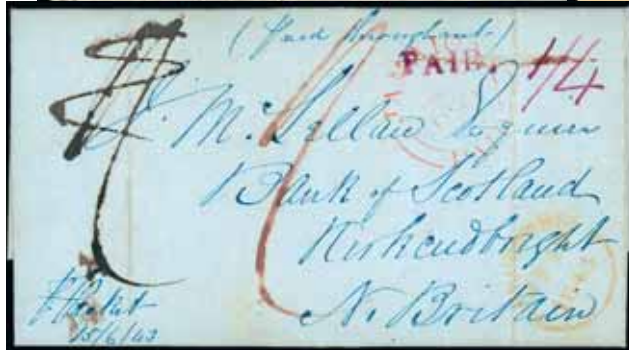 (Paid throughout)
PAID
1/4
Mc Lellan Esquire
Bank of Scotland
Kirkcudbright
N. Britain
Packet
15/6/43